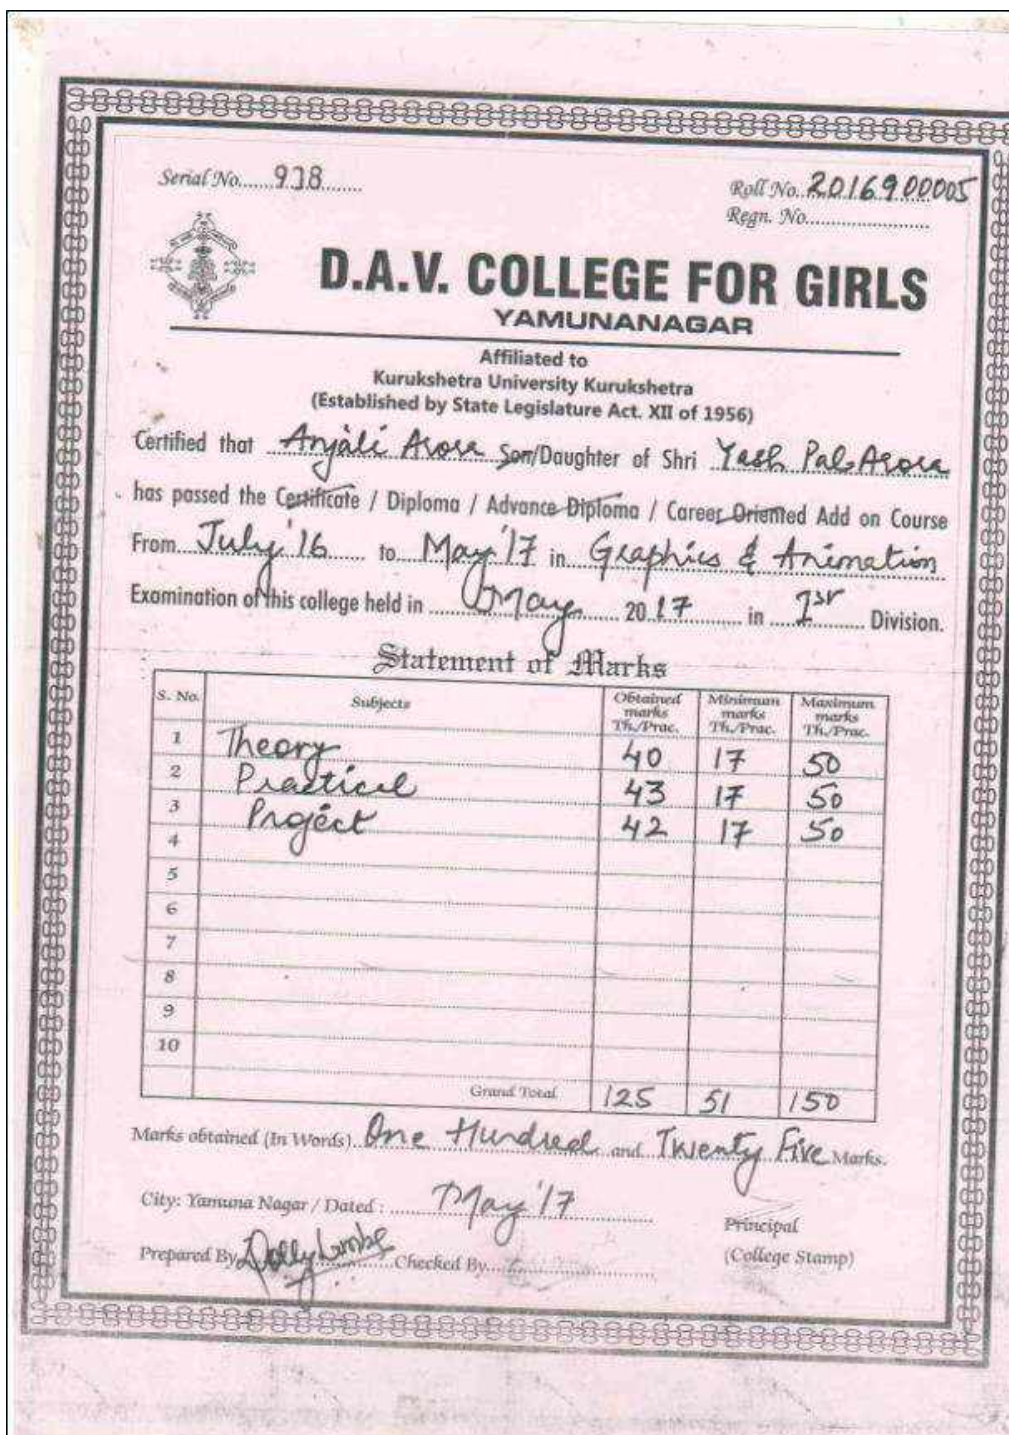 Serial No. 938
Roll No. 2016900005
Regn. No.
D.A.V. COLLEGE FOR GIRLS
YAMUNANAGAR
Affiliated to
Kurukshetra University Kurukshetra
(Established by State Legislature Act. XII of 1956)
Certified that Anjali Arora Son/Daughter of Shri Yash Pal Arora
has passed the Certificate / Diploma / Advance Diploma / Career Oriented Add on Course
From July '16 to May '17 in Graphics & Animation
Examination of this college held in May 2017 in Ist Division.
Statement of Marks
S. No. Subjects Obtained marks Th./Prac. Minimum marks Th./Prac. Maximum marks Th./Prac.
1 Theory 40 17 50
2 Practical 43 17 50
3 Project 42 17 50
4
5
6
7
8
9
10
Grand Total 125 51 150
Marks obtained (In Words) One Hundred and Twenty Five Marks.
City: Yamuna Nagar / Dated : May '17
Principal
Prepared By Checked By
(College Stamp)